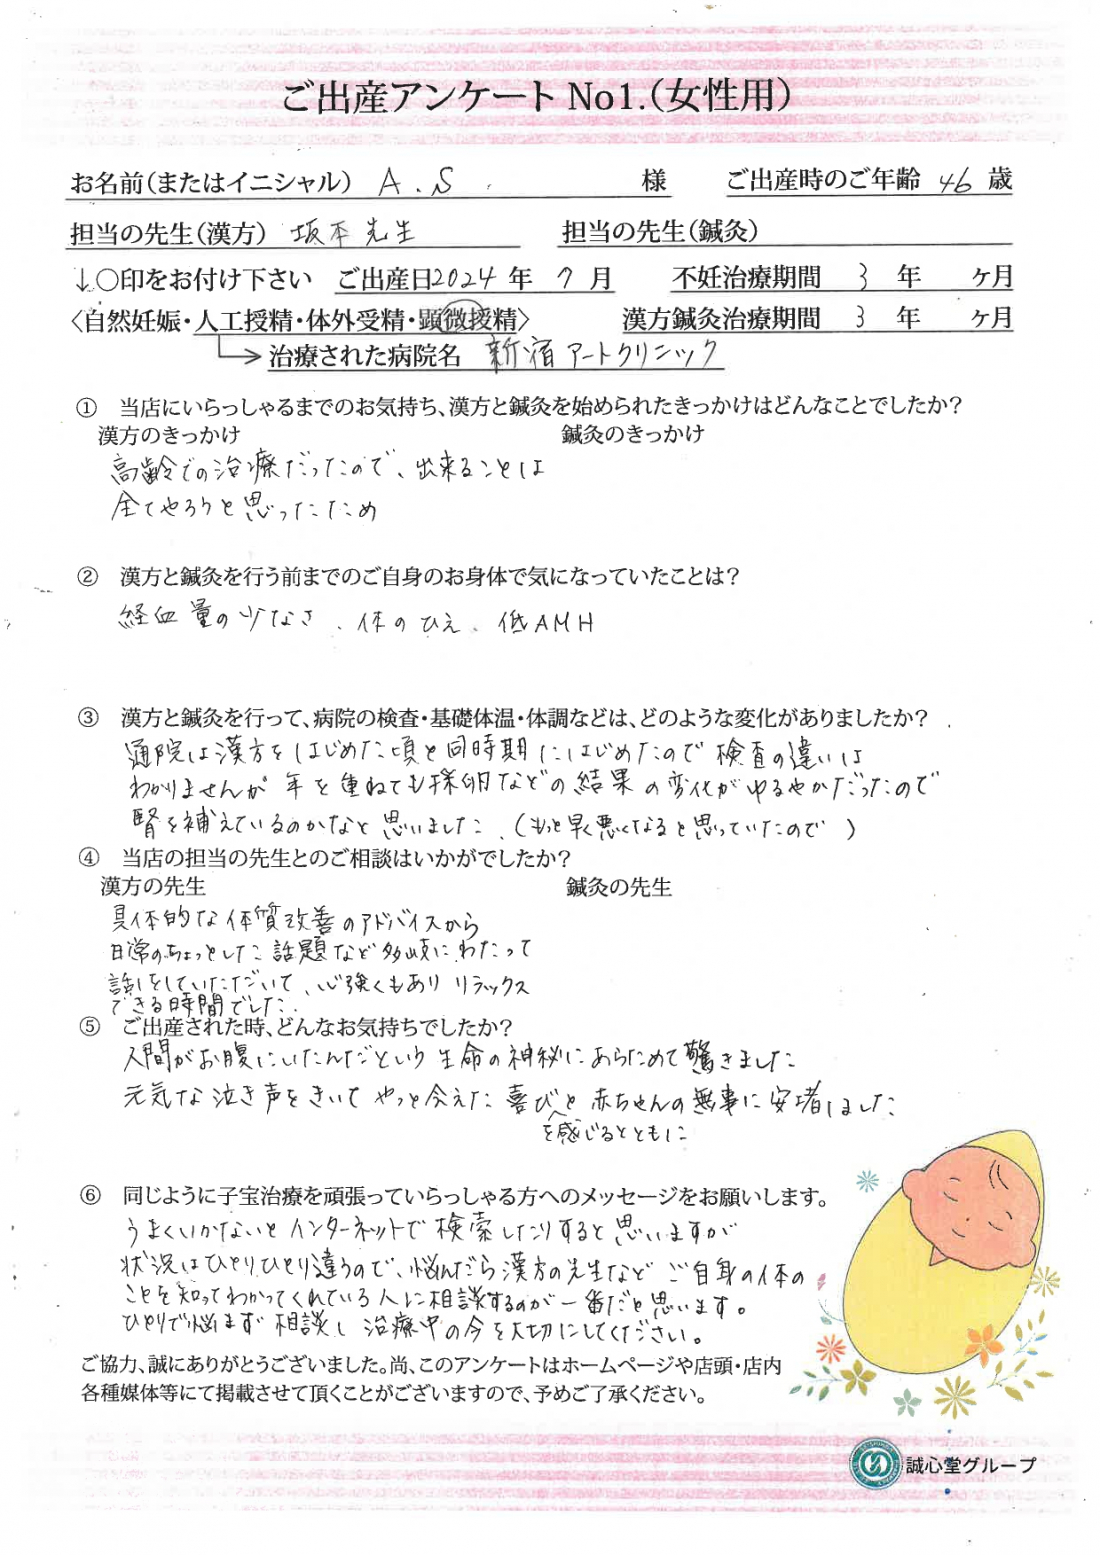 ご出産アンケート No1.(女性用)
お名前(またはイニシャル) A.S 様 ご出産時のご年齢 46 歳
担当の先生(漢方) 坂本先生 担当の先生(鍼灸)
↓○印をお付け下さい ご出産日2024年 7月 不妊治療期間 3年 ヶ月
〈自然妊娠・人工授精・体外受精・顕微授精〉 漢方鍼灸治療期間 3年 ヶ月
治療された病院名 新宿アートクリニック
① 当店にいらっしゃるまでのお気持ち、漢方と鍼灸を始められたきっかけはどんなことでしたか?
漢方のきっかけ 鍼灸のきっかけ
高齢での治療だったので、出来ることは
全てやろうと思ったため
② 漢方と鍼灸を行う前までのご自身のお身体で気になっていたことは?
経血量の少なさ、体のひえ、低AMH
③ 漢方と鍼灸を行って、病院の検査・基礎体温・体調などは、どのような変化がありましたか?
通院は漢方をはじめた頃と同時期にはじめたので検査の違いは
わかりませんが年を重ねても採卵などの結果の変化がゆるやかだったので
腎を補えているのかなと思いました。(もっと早く悪くなると思っていたので)
④ 当店の担当の先生とのご相談はいかがでしたか?
漢方の先生 鍼灸の先生
具体的な体質改善のアドバイスから
日常のちょっとした話題など多岐にわたって
話しをしていただいて、心強くもありリラックス
できる時間でした。
⑤ ご出産された時、どんなお気持ちでしたか?
人間がお腹にいたんだという生命の神秘にあらためて驚きました
元気な泣き声をきいてやっと会えた喜びと赤ちゃんの無事に安堵しました
を感じるとともに
⑥ 同じように子宝治療を頑張っていらっしゃる方へのメッセージをお願いします。
うまくいかないとインターネットで検索したりすると思いますが
状況はひとりひとり違うので、悩んだら漢方の先生などご自身の体の
ことを知ってわかってくれている人に相談するのが一番だと思います。
ひとりで悩まず相談し治療中の今を大切にしてください。
ご協力、誠にありがとうございました。尚、このアンケートはホームページや店頭・店内
各種媒体等にて掲載させて頂くことがございますので、予めご了承ください。
誠心堂グループ